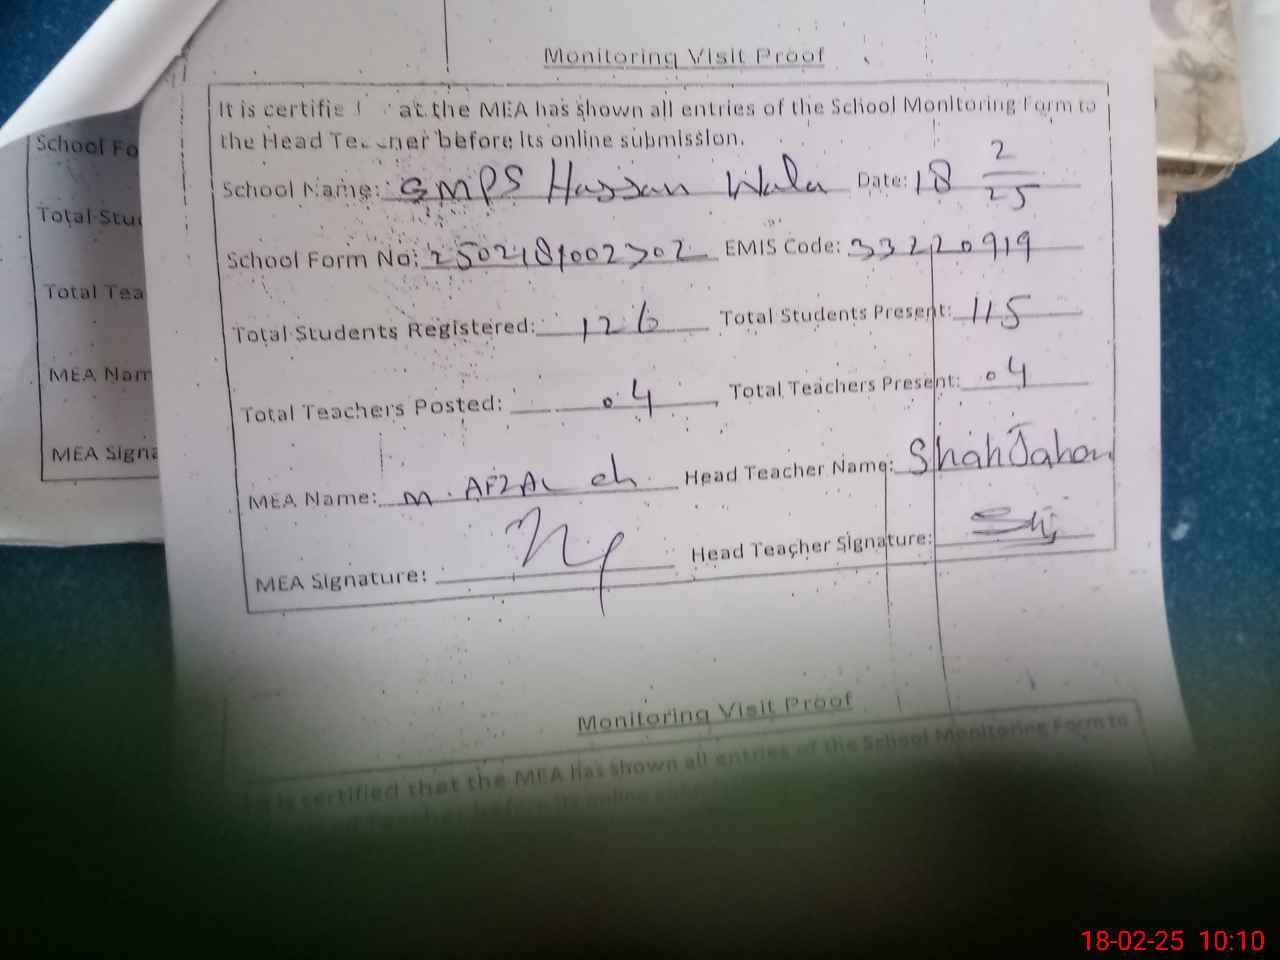 Monitoring Visit Proof
It is certifie at the MEA has shown all entries of the School Monitoring Form to
the Head before its online submission.
School Name: GMPS Hassan Wala Date: 18 2/25
School Form No: 2502181002302 EMIS Code: 33220919
Total Students Registered: 126 Total Students Present: 115
Total Teachers Posted: 04 Total Teachers Present: 04
MEA Name: M. AFZAL ch. Head Teacher Name: Shah Jahan
MEA Signature: Head Teacher Signature:
Monitoring Visit Proof
is certified that the MEA has shown all entries of the School Monitoring Form to
School Fo
Total Stu
Total Tea
MEA Nam
MEA Signa
18-02-25 10:10